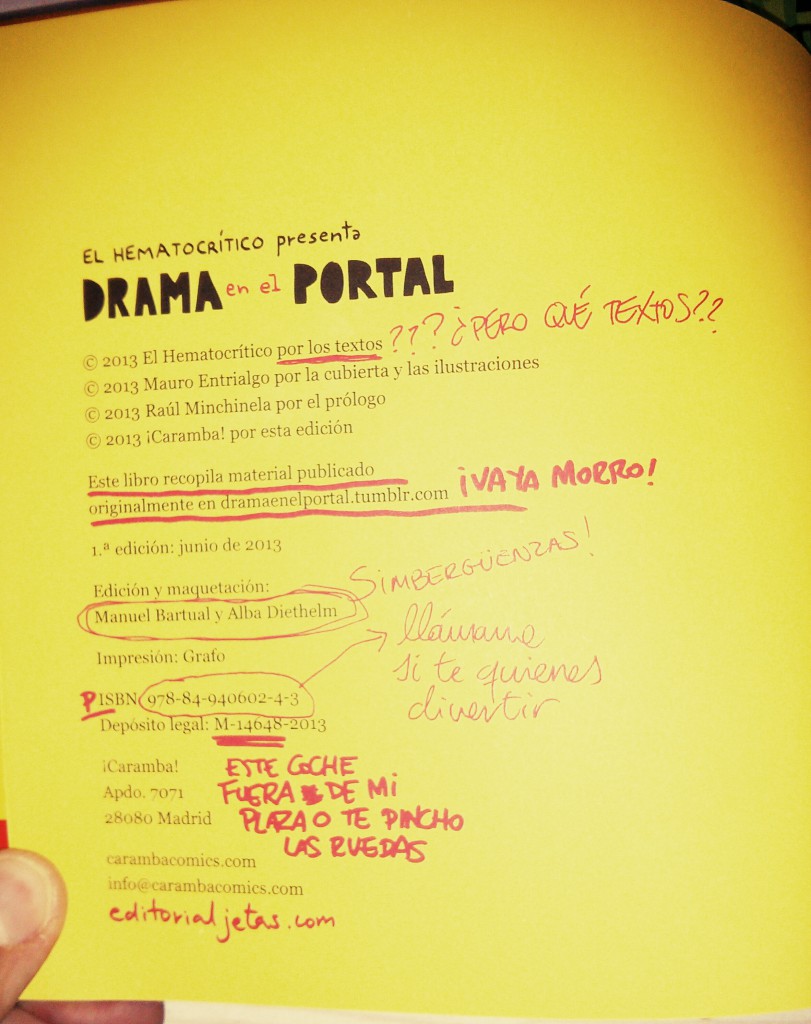 EL HEMATOCRÍTICO presenta
DRAMA en el PORTAL
© 2013 El Hematocrítico por los textos ??? ¿PERO QUÉ TEXTOS??
© 2013 Mauro Entrialgo por la cubierta y las ilustraciones
© 2013 Raúl Minchinela por el prólogo
© 2013 ¡Caramba! por esta edición
Este libro recopila material publicado
originalmente en dramaenelportal.tumblr.com ¡VAYA MORRO!
1.ª edición: junio de 2013
Edición y maquetación:
Manuel Bartual y Alba Diethelm
SIMBERGÜENZAS!
Impresión: Grafo
PISBN 978-84-940602-4-3
llámame
si te quieres
divertir
Depósito legal: M-14648-2013
¡Caramba!
Apdo. 7071
28080 Madrid
ESTE COCHE
FUERA DE MI
PLAZA O TE PINCHO
LAS RUEDAS
carambacomics.com
info@carambacomics.com
editorialjetas.com